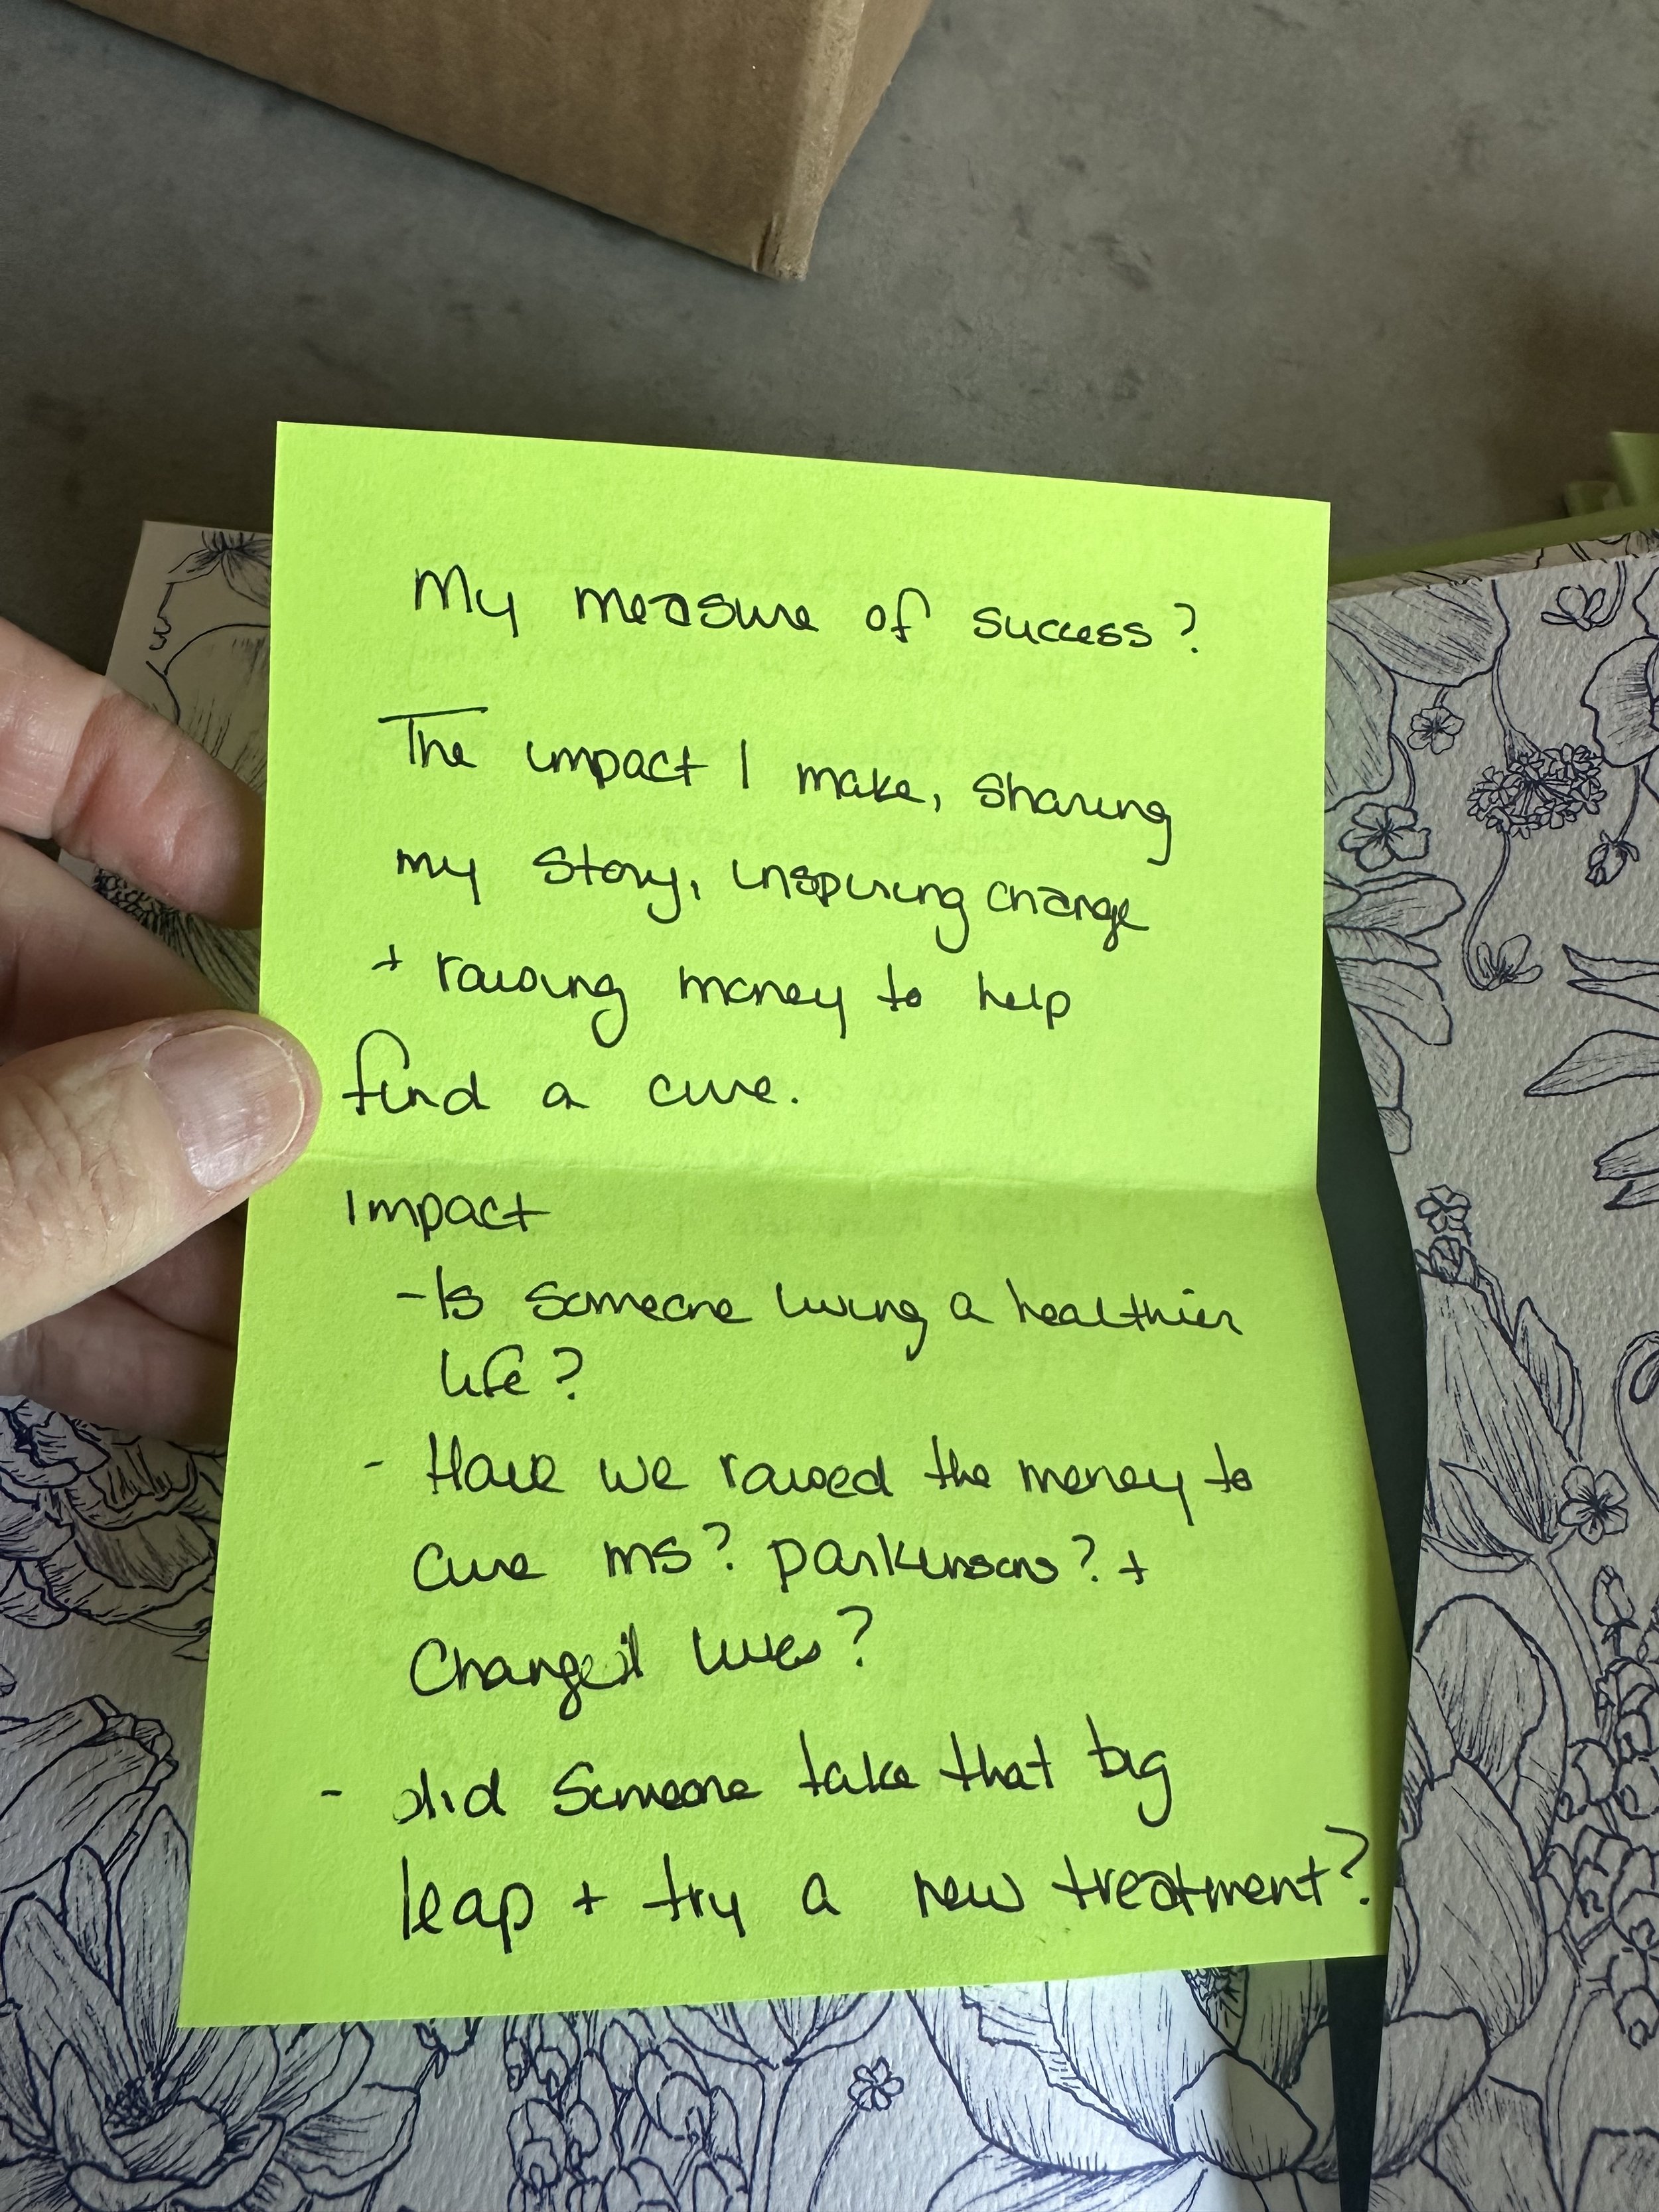 My measure of success?
The impact I make, sharing
my story, inspiring change
+ raising money to help
find a cure.
Impact
- Is someone living a healthier
life?
- Have we raised the money to
cure ms? parkinsons? +
Changed lives?
- did someone take that big
leap + try a new treatment?